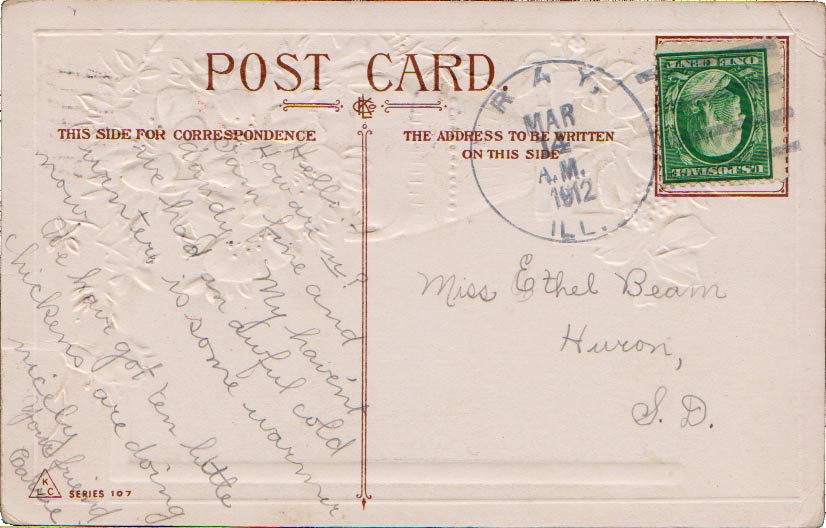 POST CARD.
THIS SIDE FOR CORRESPONDENCE
THE ADDRESS TO BE WRITTEN
ON THIS SIDE
RAY,
MAR
14
A.M.
1912
ILL.
U.S. POSTAGE
ONE CENT
Hello!
How are u?
I am fine and
dandy. My haven't
we had an awful cold
winter is some warmer
now.
We have got ten little
chickens are doing
nicely
Your friend
Miss Ethel Beam
Huron,
S. D.
K
L C
SERIES 107